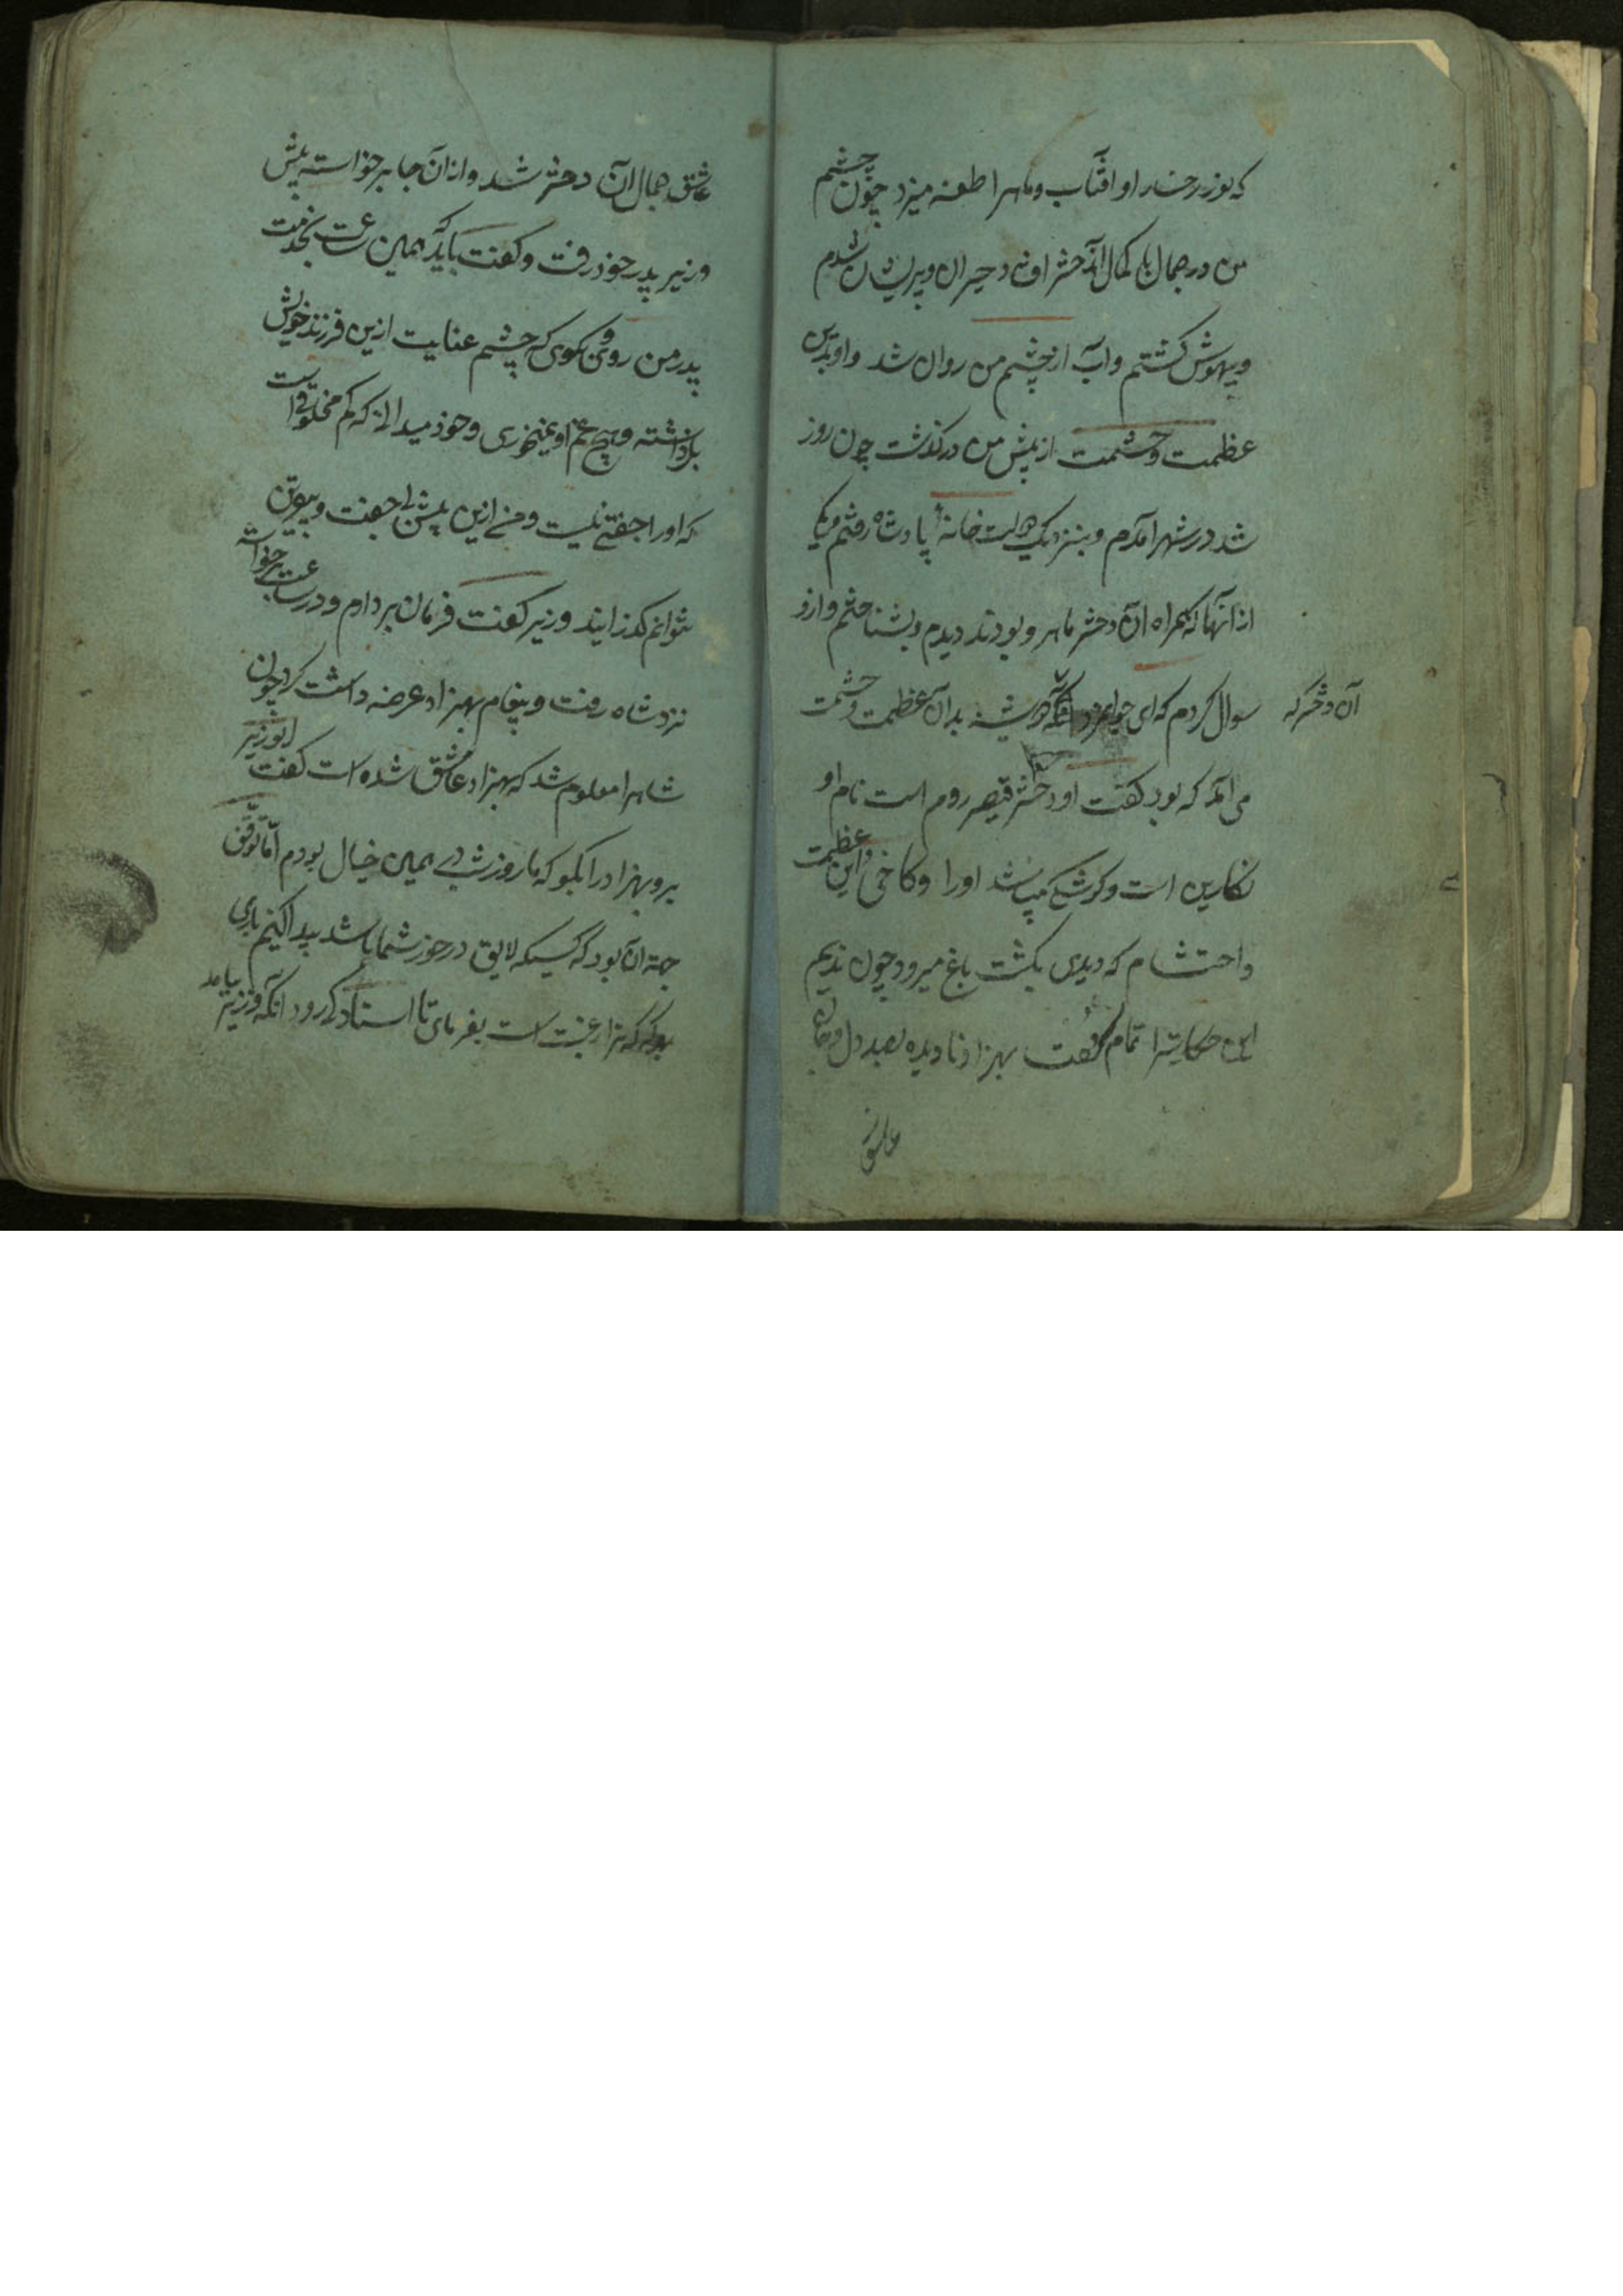 که نور رخسار او افتاب و ماهرا طعنه میزد چون چشم
من در جمال با کمال آندختر افتاد حیران و پریشان شدم
و بیهوش گشتم و آب از چشم من روان شد و او بدین
عظمت و حشمت از پیش من درگذشت چون روز
شد در شهر آمدم و بنزدیک دولت خانهٔ پادشاه رفتم یکی
از آنها که همراه آن دختر ماهرو بودند دیدم و بشناختم و ازو
سوال کردم که ای جوانمرد بدان عظمت و حشمت
آن دختر که
می آمد که بود گفت او دختر قیصر روم است نام او
نگارین است و کوشکی میباشد اورا و کاخی و این عظمت
و احتشام که دیدی بگشت باغ میرود چون ندیم
این حکایترا تمام گفت بهزاد نادیده بصد دل و جان
عاشق
عاشق جمال آن دختر شد و از آن جا برخواسته پیش
وزیر پدر خود رفت و گفت باید که همین ساعت بخدمت
پدر من روی و بگوی که چشم عنایت ازین فرزند خویش
برداشته و هیچ غم او نمیخوری و خود میدانی که کم مخلوقاست
که اورا جفتی نیست و من ازین پیش بی جفت و بی
نتوانم گذرانید وزیر گفت فرمان بردارم و در ساعت برخواسته
نزد شاه رفت و پیغام بهزاد عرضه داشت کرد چون
شاهرا معلوم شد که بهزاد عاشق شده است گفت ای وزیر
برو بهزاد را بگو که ما روز شب در همین خیال بودم اما توقف
جهة آن بود که کسیکه لایق درخور شما باشد پیدا کنیم باری
هر که ترا رغبت است بفرمای تا استاد کی رود آنگه وزیر بیامد